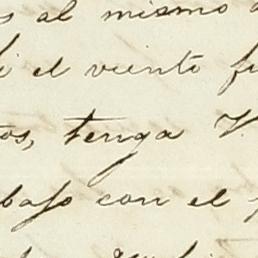 s al mismo
i el viento fu
tos, tenga V.
bajo con el